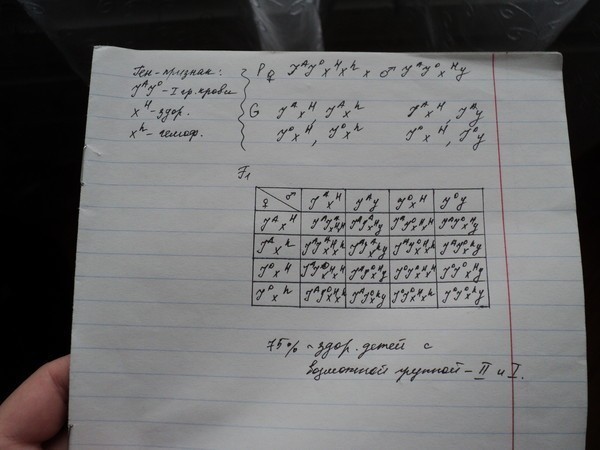 Ген-признак:
J^A J^0 - I гр. крови
x^H - здор.
x^h - гемоф.
P ♀ J^A J^0 x^H x^h × ♂ J^A J^0 x^H y
G J^A x^H, J^A x^h J^A x^H, J^A y
J^0 x^H, J^0 x^h J^0 x^H, J^0 y
F₁
♀ ♂ J^A x^H J^A y J^0 x^H J^0 y
J^A x^H J^A J^A x^H x^H J^A J^A x^H y J^A J^0 x^H x^H J^A J^0 x^H y
J^A x^h J^A J^A x^H x^h J^A J^A x^h y J^A J^0 x^H x^h J^A J^0 x^h y
J^0 x^H J^A J^0 x^H x^H J^A J^0 x^H y J^0 J^0 x^H x^H J^0 J^0 x^H y
J^0 x^h J^A J^0 x^H x^h J^A J^0 x^h y J^0 J^0 x^H x^h J^0 J^0 x^h y
75% - здор. детей с
возможной группой - II и I.